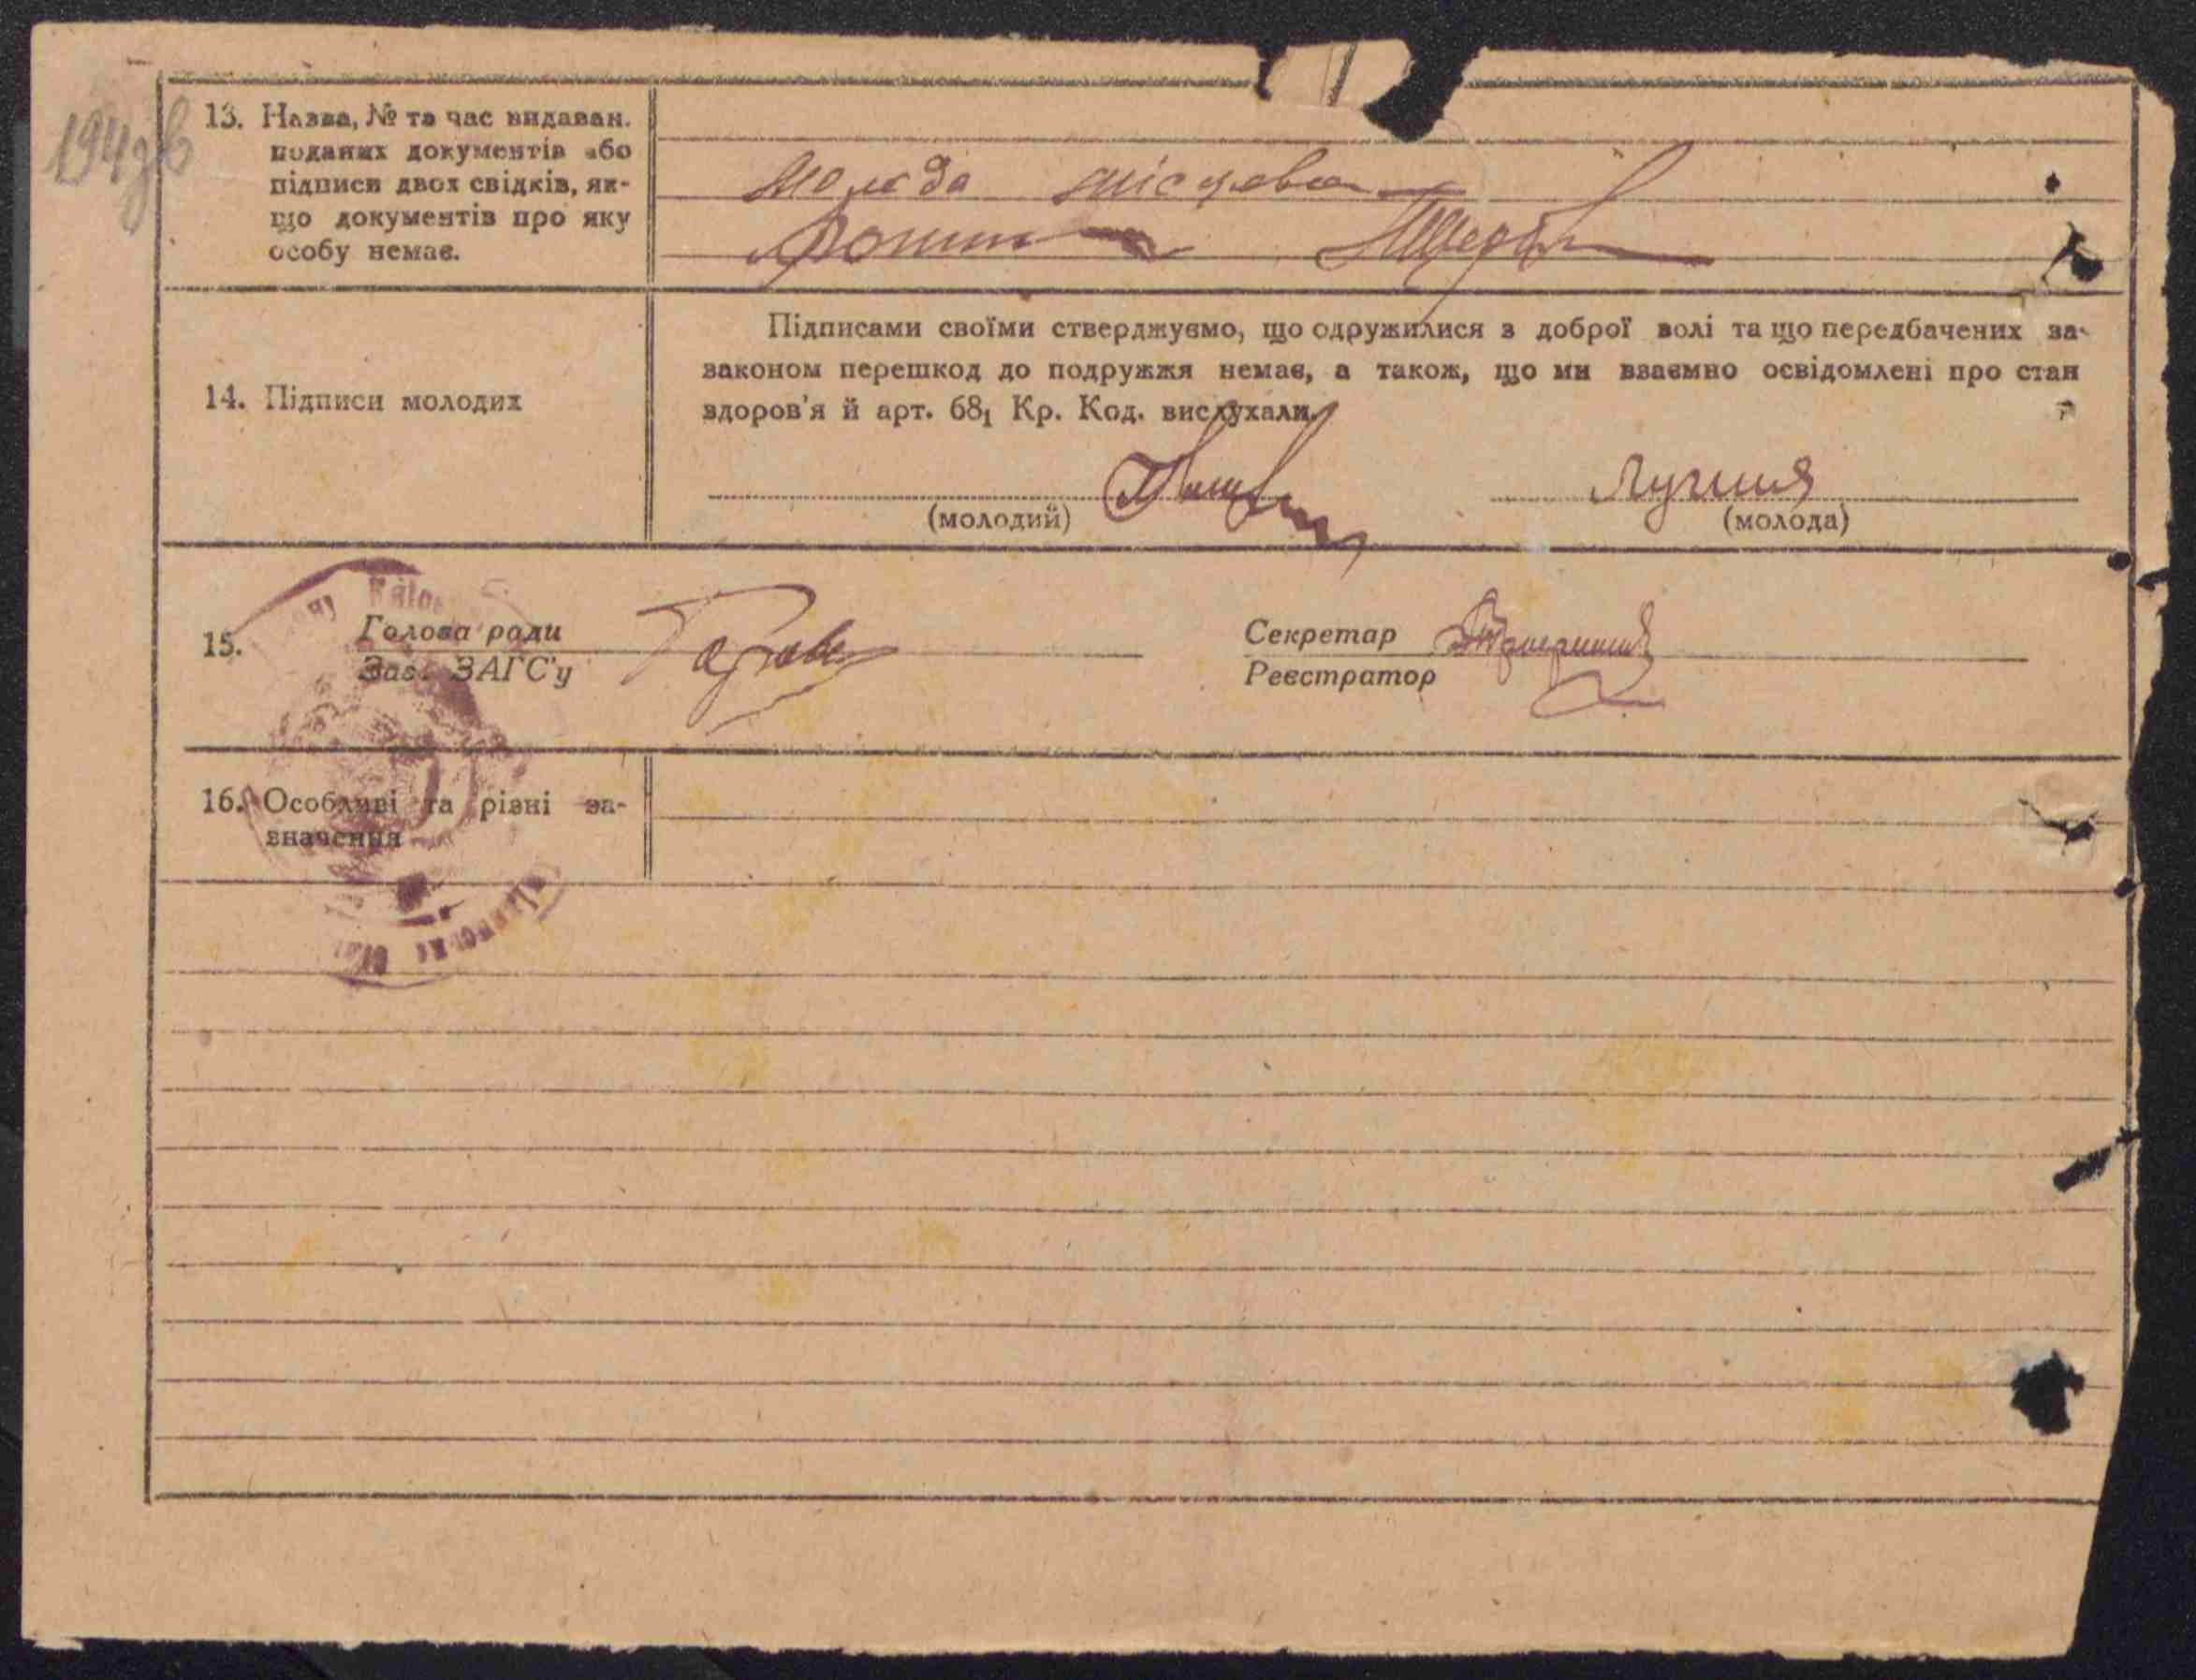 194зв
13. Назва, № та час видаван.
поданих документів або
підписи двох свідків, як-
що документів про яку
особу немає.
молода місцева
14. Підписи молодих
Підписами своїми стверджуємо, що одружилися з доброї волі та що передбачених за-
законом перешкод до подружжя немає, а також, що ми взаємно освідомлені про стан
здоров'я й арт. 68₁ Кр. Код. вислухали.
(молодий)
(молода)
15.
Голова ради
Зав. ЗАГС'у
Секретар
Реєстратор
16. Особливі та різні за-
значення